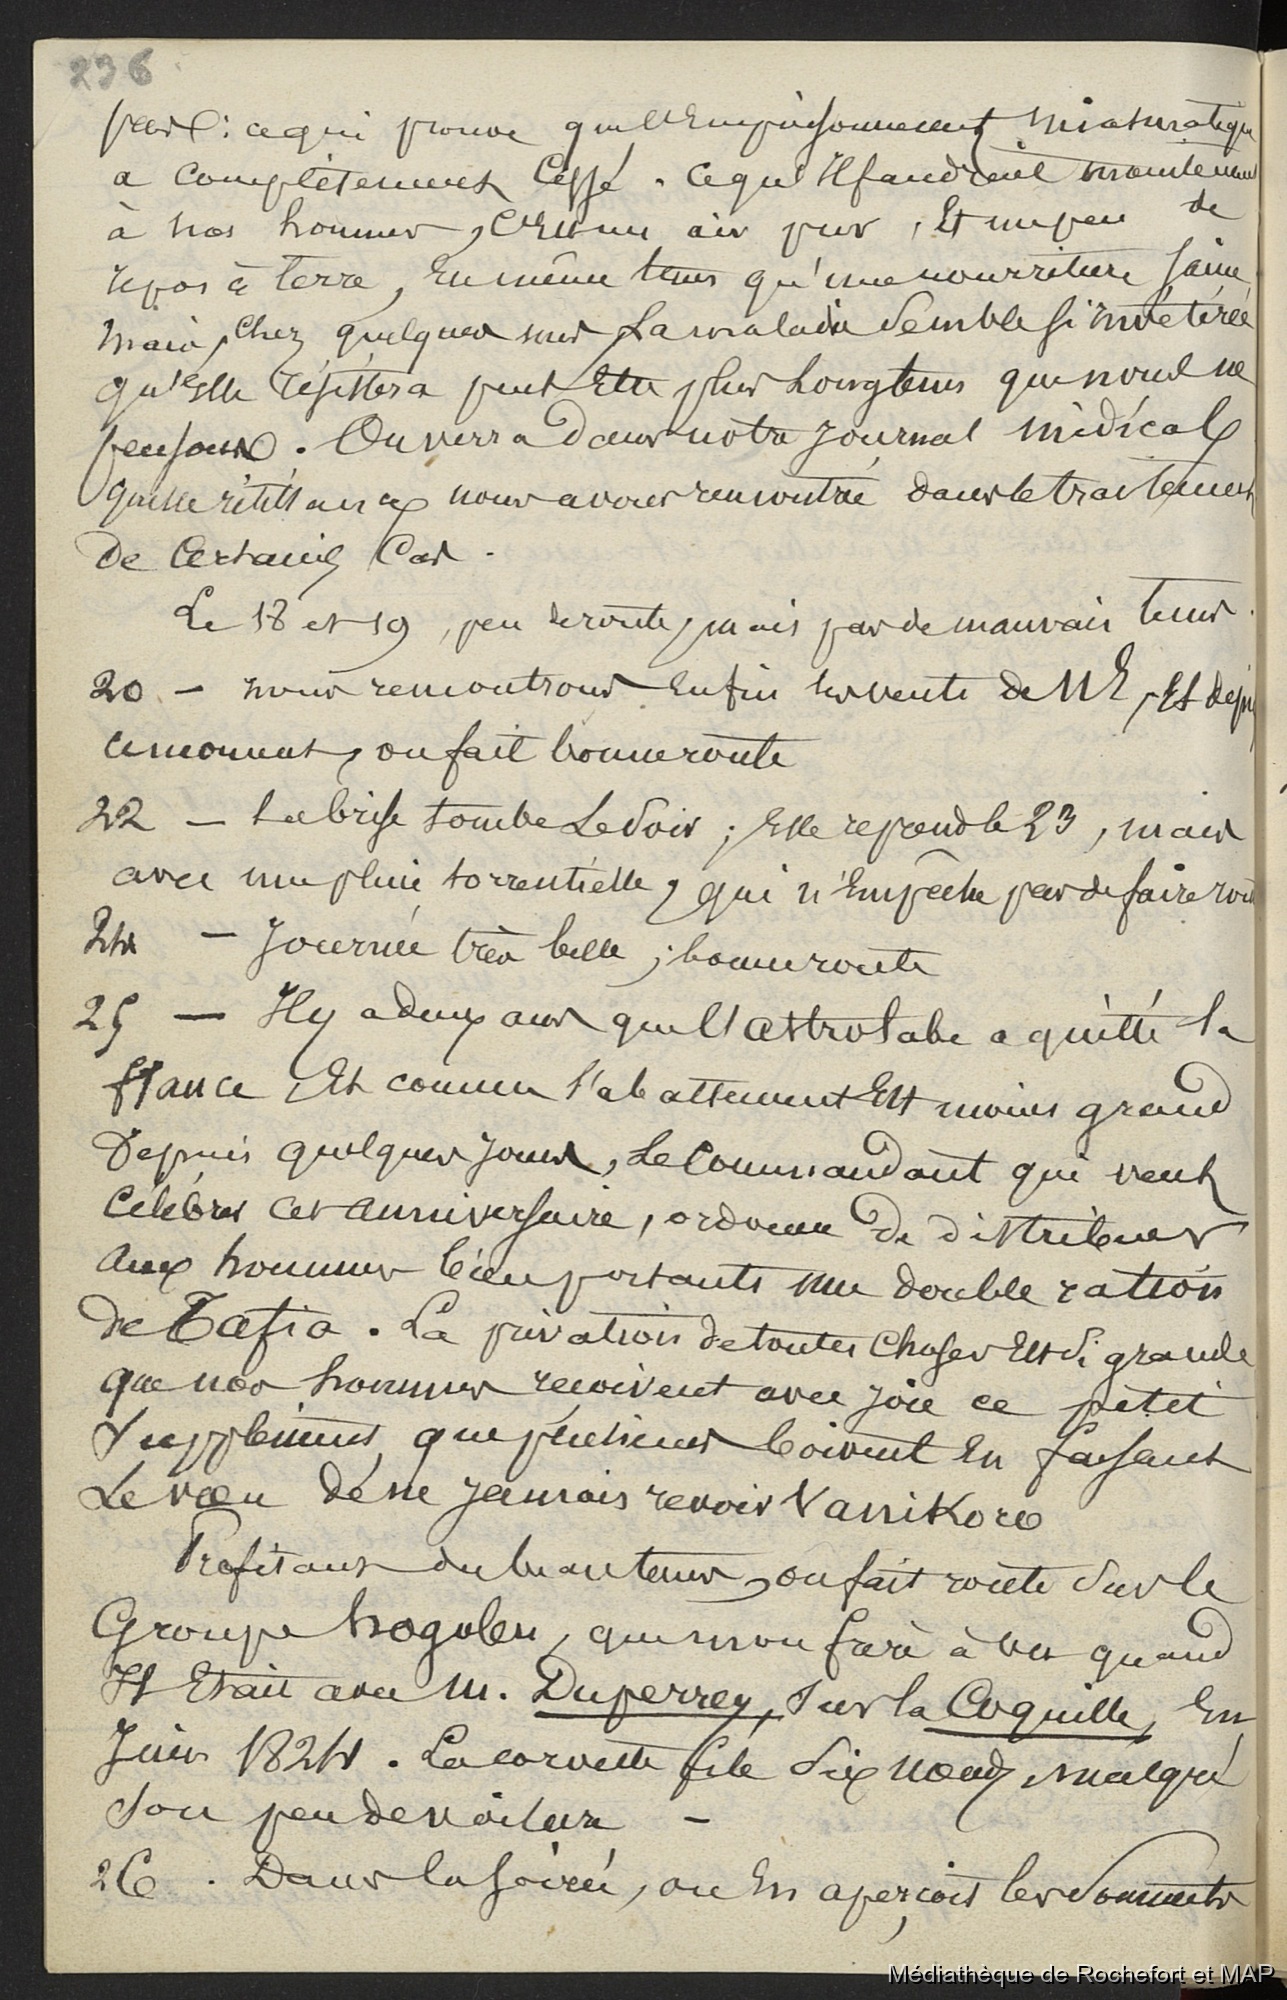 236
pas : ce qui prouve que l'Empoisonnement miasmatique
a complètement Cessé. Ce qu'Il faudrait maintenant
à nos hommes, C'Est un air pur, Et un peu de
repos à terre, En même tems qu'une nourriture saine,
mais, Chez quelques uns, La maladie Semble si invétérée
qu'elle résistera peut Etre plus Longtems que nous ne
pensons. On verra dans notre Journal médical
quelle résistance nous avons rencontré dans le traitement
De Certains Cas.
Le 18 et 19, peu de route, mais pas de mauvais tems.
20 — nous rencontrons Enfin les vents de NE, Et depuis
ce moment, on fait bonne route
22 — La brise tombe Le Soir ; Elle reprend le 23, mais
avec une pluie torrentielle, qui n'Empêche pas de faire route
24 — Journée très belle ; bonne route
25 — Il y a deux ans que l'Astrolabe a quitté la
France, Et comme l'abattement Est moins grand
Depuis quelques jours, Le Commandant qui veut
Célébrer cet anniversaire, ordonne De distribuer
aux hommes bien portants une double ration
de Tafia. La privation de toutes Choses Est Si grande
que nos hommes reçoivent avec joie ce petit
Supplément, que plusieurs boivent En faisant
Le vœu de ne jamais revoir Vanikoro
Profitant du beau tems, on fait route Sur le
Groupe hogoleu, que mon frère à vu quand
Il Etait avec M. Duperrey, Sur la Coquille, En
Juin 1824. La corvette file Six nœuds, malgré
Son peu de voilure —
26. Dans la soirée, on En aperçoit les Sommets
Médiathèque de Rochefort et MAP